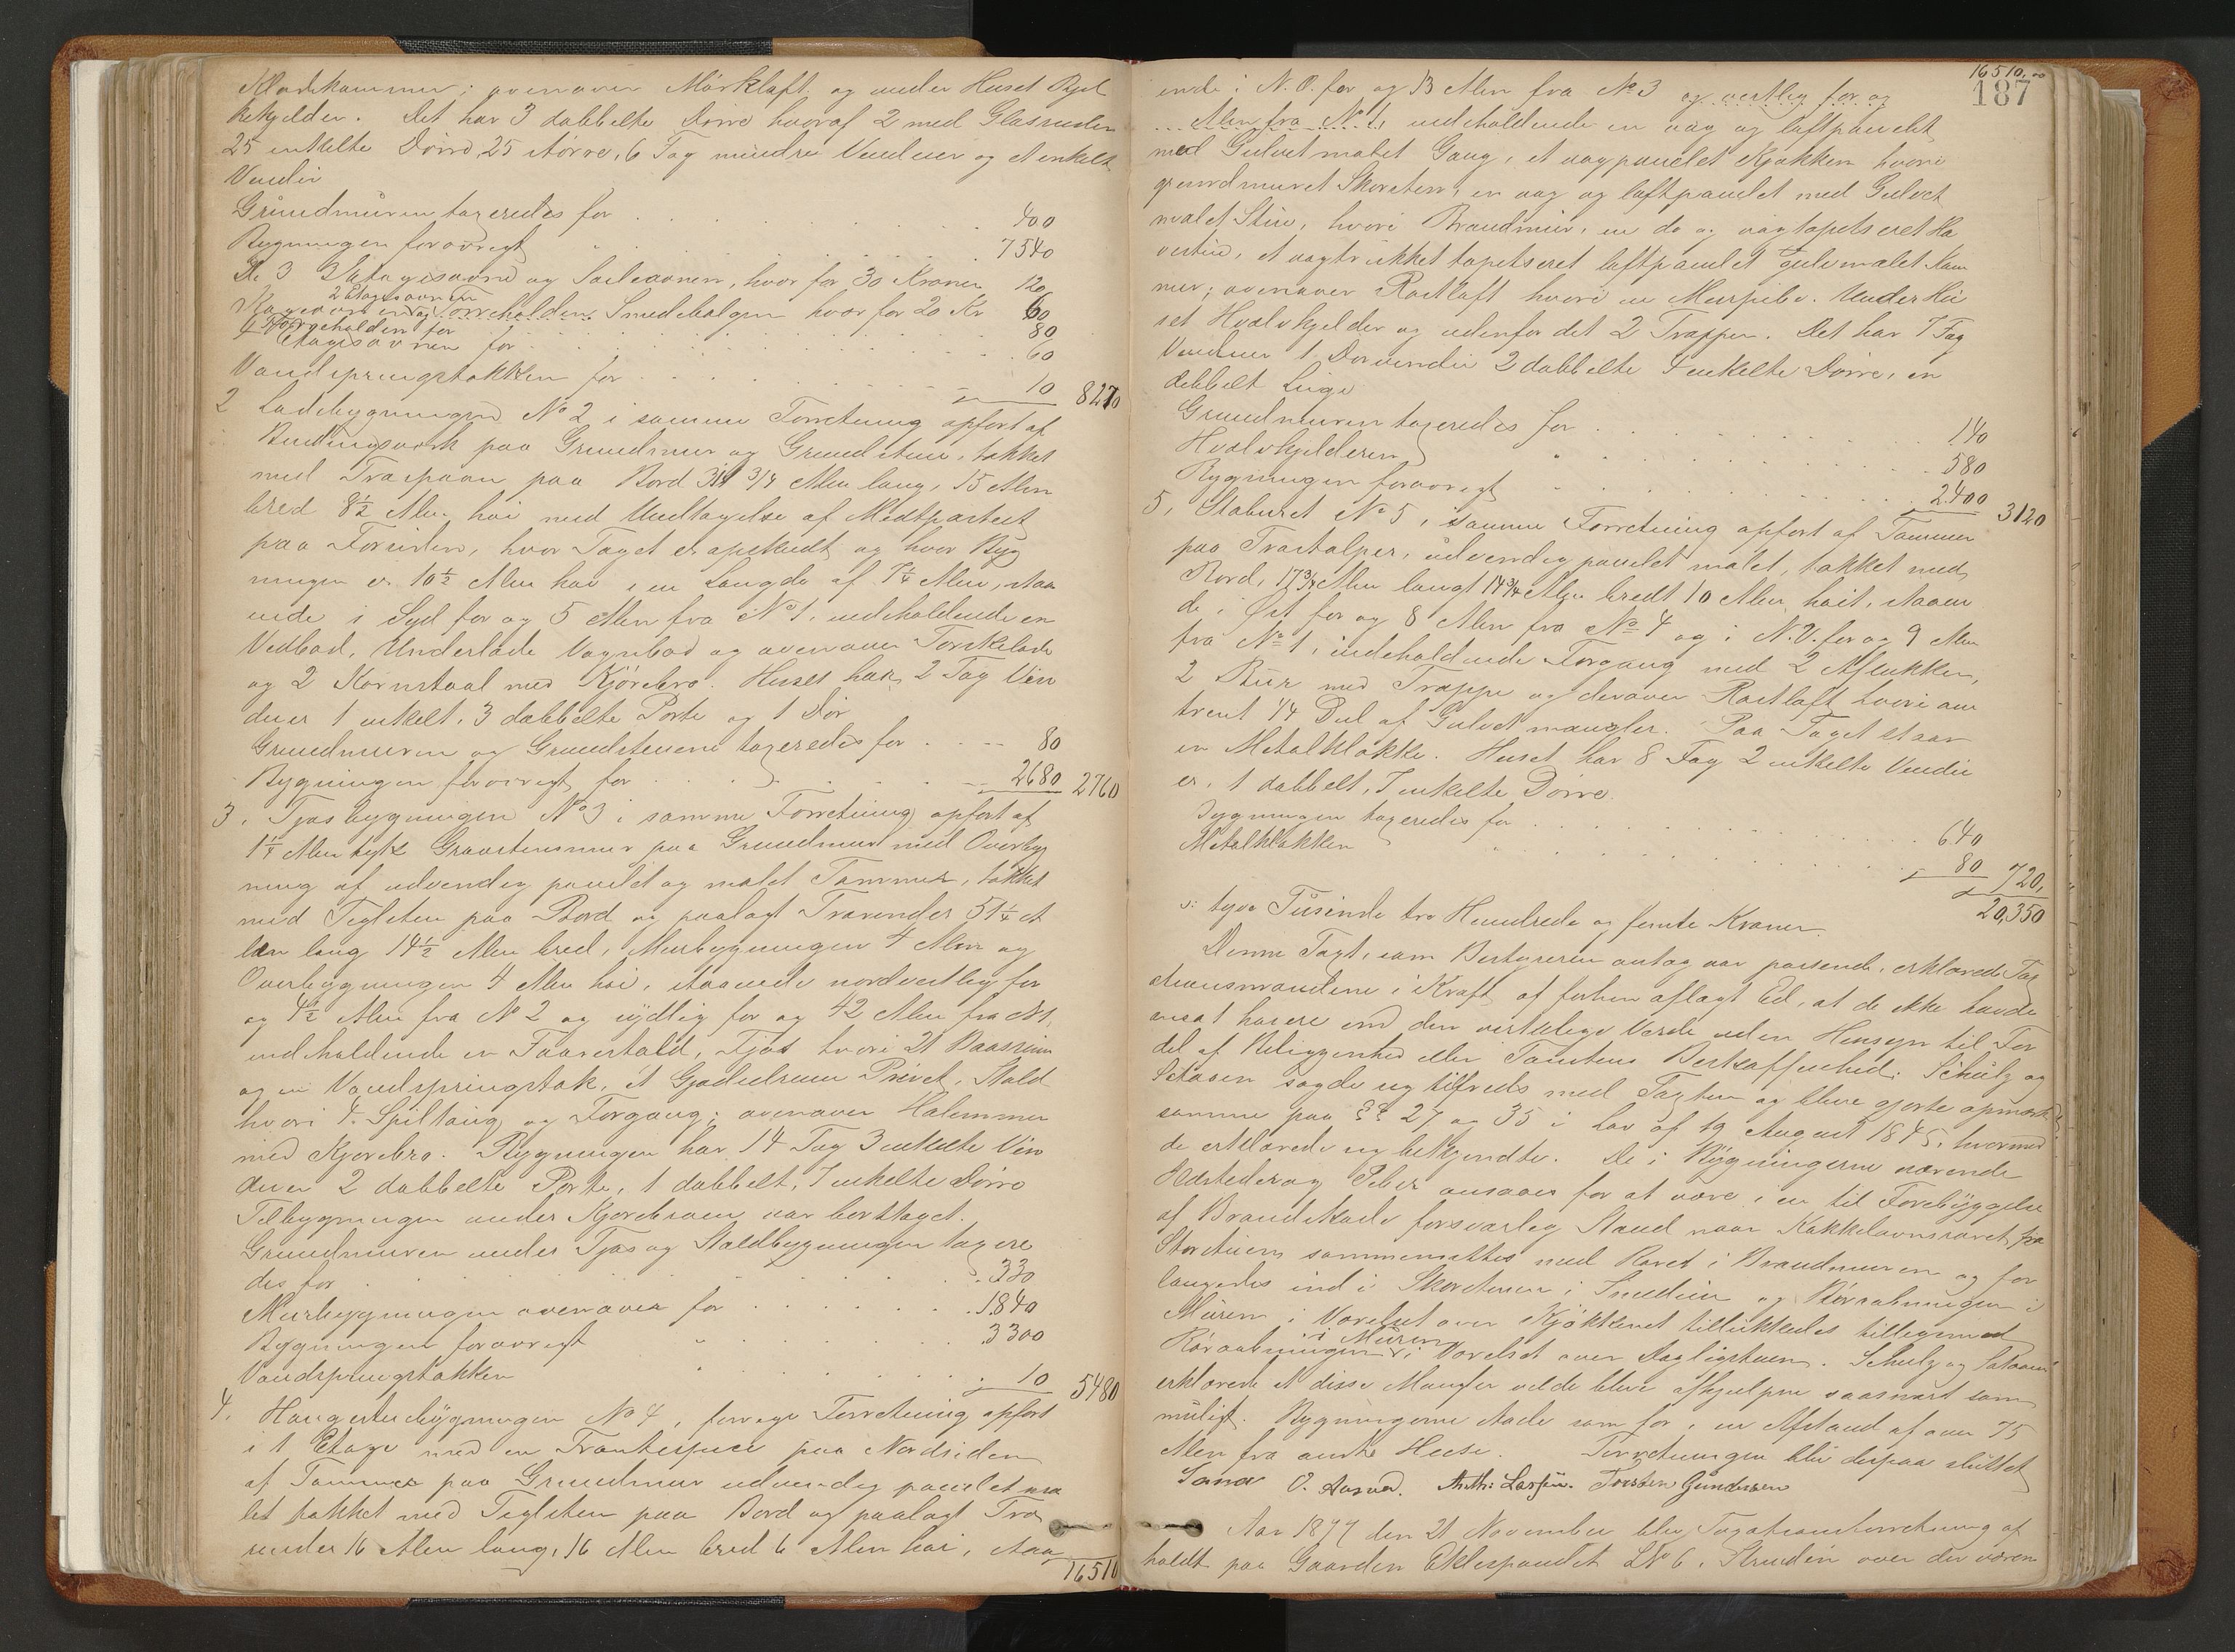 Madkammer; ovenover Mørkloft og under Huset Bjel
kekjelder. Det har 3 dobbelte Dørre hvoraf 2 med Glasruder
25 enkelte Dørre, 25 større, 6 Fag mindre Vinduer og et enkelt
Vindu
Grundmuren taxeredes for 400
Bygningen forøvrigt " 7540
De 3 3 Etagesovne og Søileovnen, hver for 30 Kroner 120
2 Etagesovnen
Smedebælgen hver for 20 Kr 60
for 80
Etagesovnen for 60
Vandspringstokken for 10 8270
2 Ladebygningen No 2 i samme Forretning opført af
Bindingsværk paa Grundmur og Grundstene, tækket
med Træspaan paa Bord 31 3/4 Alen lang, 15 Alen
bred 8½ Alen høi med Undtagelse af Midtpartiet
paa Forsiden, hvor Taget er opskudt og hvor Byg
ningen er 10½ Alen høi i en Længde af 7¼ Alen, staa
ende i Syd for og 5 Alen fra No 1, indeholdende en
Vedbod, Underlade Vognbod og ovenover Torskelade
og 2 Kornstaal med Kjørebro. Huset har 2 Fag Vin
duer 1 enkelt, 3 dobbelte Porte og 1 Dør
Grundmuren og Grundstenene taxeredes for 80
Bygningen forøvrigt for 2680 2760
3. Fjøsbygningen No 3 i samme Forretning opført af
1¼ Alen tyk Graastensmur paa Grundmur med Overbyg
ning af udvendig panelet og malet Tømmer, tækket
med Teglsten paa Bord og paalagt Trærender 51¼ A
len lang 14½ Alen bred, Murbygningen 4 Alen og
Overbygningen 4 Alen høi, staaende nordvestlig for
og 4½ Alen fra No 2 og sydlig for og 42 Alen fra No 1,
indeholdende en Faarestald, Fjøs hvori 21 Baasrum
og en Vandspringstok, et Gjødselrum Privet, Stald
hvori 4 Spiltaug og Forgang; ovenover Halmrum
med Kjørebro. Bygningen har 14 Fag 3 enkelte Vin
duer 2 dobbelte Porte, 1 dobbelt, 7 enkelte Dørre
Tilbygningen under Kjørebroen var borttaget.
Grundmuren under Fjøs og Staldbygningen taxere
des for 330
Murbygningen ovenover for 1840
Bygningen forøvrigt " 3300
Vandspringstokken " 10 5480
4. Haugestubygningen No 4, forrige Forretning opført
i 1 Etage med en Frontespice paa Nordsiden
af Tømmer paa Grundmur udvendig panelet ma
let tækket med Teglsten paa Bord og paalagt Træ
render 16 Alen lang, 16 Alen bred 6 Alen høi, staa
16510
16510,00
187
ende i N.V. for og 13 Alen fra No 3 og vestlig for og
Alen fra No 1, indeholdende en væg og loftpanelet
med Gulvet malet Gang, et vægpanelet Kjøkken hvori
grundmuret Skorsten, en væg og loftpanelet med Gulvet
malet Stue, hvori Brandmur, en do og vægtapetseret Ka
vestue, et vægtrukket tapetseret loftpanelet gulvmalet Kam
mer; ovenover Røstloft hvori en Murpibe. Under Hu
set Hvælvkjelder og udenfor det 2 Trapper. Det har 7 Fag
Vinduer 1 Dørvindu 2 dobbelte 4 enkelte Dørre, en
dobbelt Luge
Grundmuren taxeredes for 140
Hvælvkjelderen " 580
Bygningen forøvrigt 2400 3120
5. Staburet No 5, i samme Forretning opført af Tømmer
paa Træstolper, udvendig panelet malet, tækket med
Bord, 17¾ Alen langt 14¾ Alen bredt 10 Alen høit, staaen
de i Øst for og 8 Alen fra No 4 og i N.V. for og 9 Alen
fra No 1, indeholdende Forgang med 2 Aflukker,
2 Bur med Trappe og derover Røstloft hvori om
trent ¼ Del af Gulvet mangler. Paa Taget staar
en Metalklokke. Huset har 8 Fag 2 enkelte Vindu
er, 1 dobbelt, 7 enkelte Dørre.
Bygningen taxeredes for 640
Metalklokken " 80 720,
20,350
o: tyve Tusinde tre Hundrede og femti Kroner.
Denne Taxt, som Bestyreren antog var passende, erklærede Tax
ationsmændene i Kraft af forhen aflagt Ed, at de ikke havde
ansat høiere end den virkelige Værdi uden Hensyn til For
del af Beliggenhed eller Tomtens Beskaffenhed. Schulz og
sagde sig tilfreds med Taxten og bleve gjorte opmærk
somme paa §§ 27 og 35 i Lov af 19 August 1845, hvormed
de erklærede sig bekjendte. De i Bygningerne værende
Ildsteder og Piber ansaaes for at være i en til Forebyggelse
af Brandskade forsvarlig Stand naar Kakkelovnsrøret fra
Storstuen sammensættes med Røret i Brandmuren og for
længedes ind i Skorstenen i Smedien og Rørnabningen i
Muren i Værelset over Kjøkkenet tillukkedes tilligemed
Røraabningen i Muren i Værelset over Dagligstuen. Schulz og
erklærede at disse Mangler vilde blive afhjulpne saasnart som
muligt. Bygningerne stode som før i en Afstand af over 75
Alen fra andre Huse. Forretningen blev derpaa sluttet
O. Aarnæs. Anth: Larssen. Torsten Gundersen
Aar 1877 den 21 November blev Taxationsforretning af
holdt paa Gaarden LNo 6, over de væren